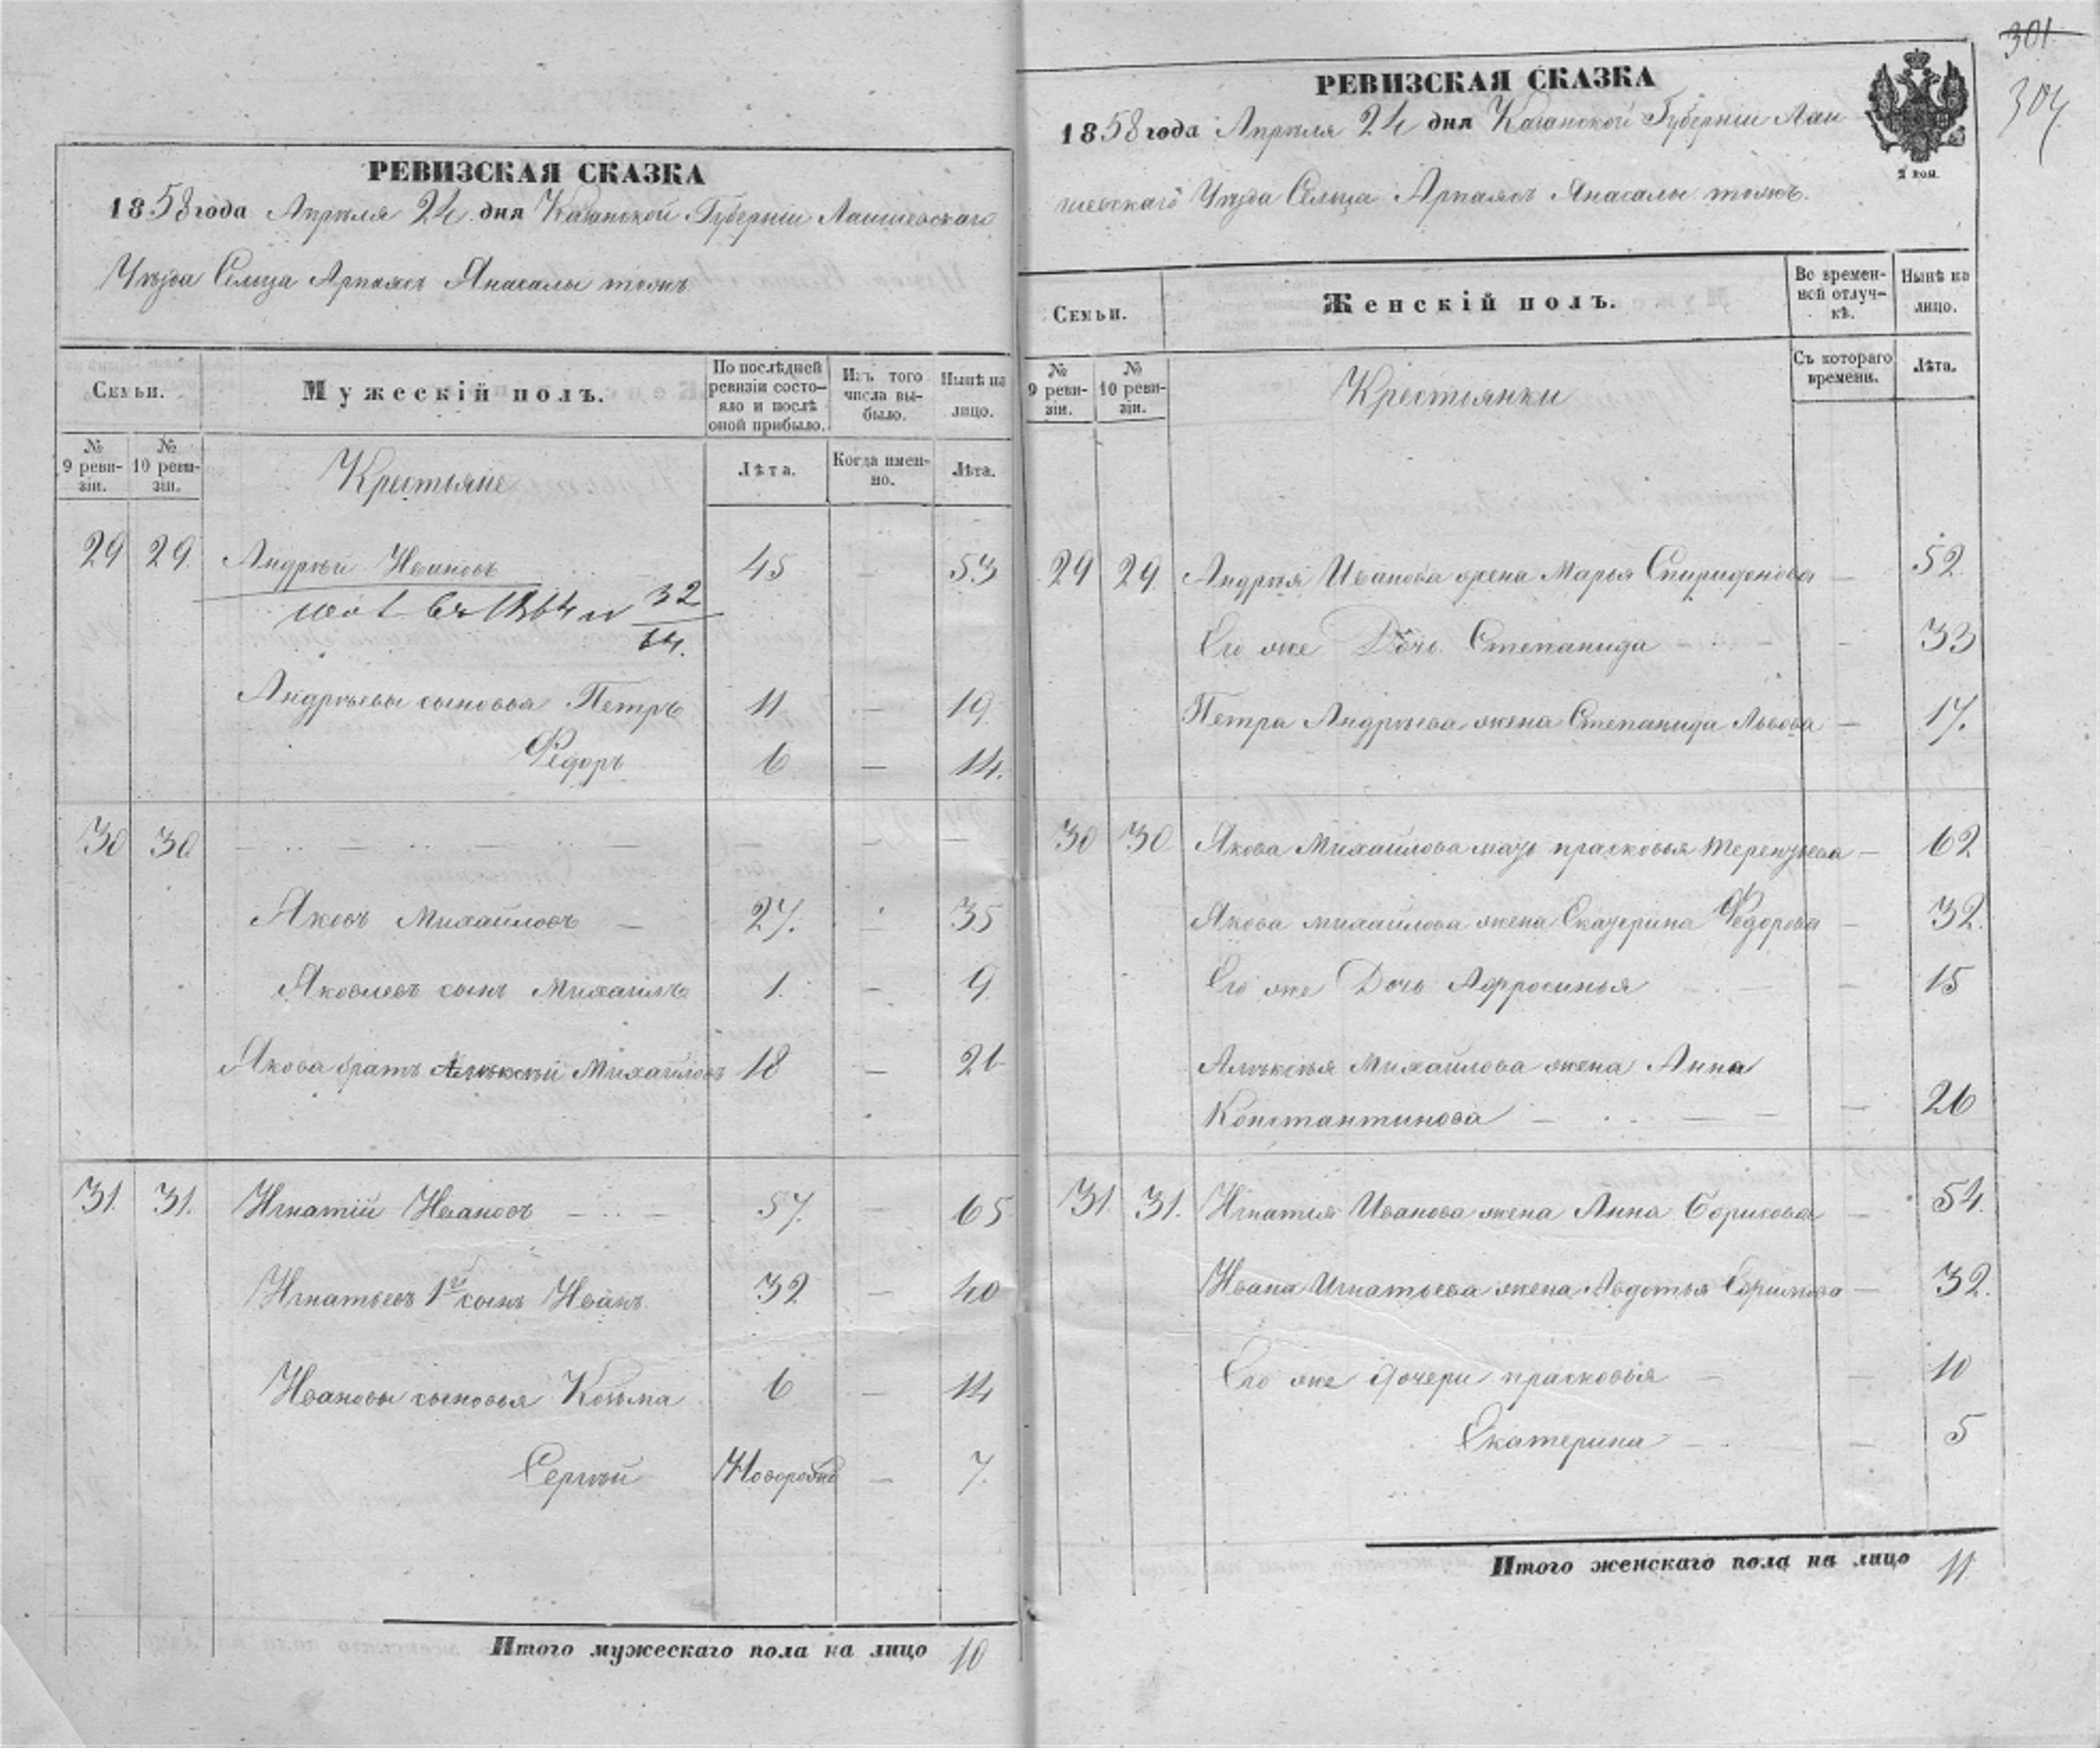 301
304
РЕВИЗСКАЯ СКАЗКА
1858 года Апрѣля 24 дня Казанской Губерніи Лаишевскаго
Уѣзда Сельца Арпаясъ Янасалы тожъ
Семьи.
Мужескій полъ.
По послѣдней ревизіи состояло и послѣ оной прибыло.
Изъ того числа выбыло.
Нынѣ на лицо.
№ 9 ревизіи.
№ 10 ревизіи.
Крестьяне
Лѣта.
Когда именно.
Лѣта.
29 29. Андрей Ивановъ 45 — 53
32
64.
Андрѣевы сыновья Петръ 11 — 19.
Федоръ 6 — 14.
30 30. — — — — —
Яковъ Михайловъ — 27. — 35
Яковлевъ сынъ Михаилъ 1. — 9
Якова братъ Алѣксѣй Михайловъ 18 — 26
31. 31. Игнатій Ивановъ — 57. — 65
Игнатьевъ 1й сынъ Иванъ 32 — 40
Ивановы сыновья Козьма 6 — 14
Сергѣй Новорожд — 7.
Итого мужескаго пола на лицо 10
РЕВИЗСКАЯ СКАЗКА
1858 года Апрѣля 24 дня Казанской Губерніи Лаи
шевскаго Уѣзда Сельца Арпаясъ Янасалы тожъ.
2 коп.
Семьи.
Женскій полъ.
Во временной отлучкѣ.
Нынѣ на лицо.
№ 9 ревизіи.
№ 10 ревизіи.
Крестьянки
Съ котораго времени.
Лѣта.
29 29. Андрея Иванова жена Марья Спиридонова — 52
Его же Дочь Степанида — — 33
Петра Андрѣева жена Степанида Львова — 17.
30 30 Якова Михайлова мать прасковья терентьева — 62
Якова михайлова жена Екатерина Федорова — 32.
Его же Дочь Афросинья — — 15
Алѣксѣя Михайлова жена Анна
Константинова — — — 26
31. 31. Игнатія Иванова жена Анна Борисова — 54.
Ивана Игнатьева жена Авдотья Ефимова — 32.
Его же дочери прасковья — — 10
Екатерина — — 5
Итого женскаго пола на лицо 11.